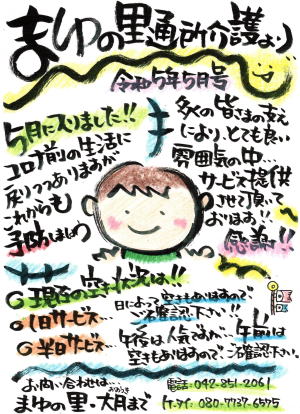 まゆの里通所介護より
令和5年5月号
5月に入りました!!
コロナ前の生活に
戻りつつありますが
これからも
予防しましょう
多くの皆さまの支え
により、とても良い
雰囲気の中…
サービス提供
させて頂いて
おります!!
感謝!!
現在の空き状況は!!
日によって空きもありますので
ご確認下さい!!
1日サービス…
半日サービス…
午後は人気ですが、午前は
空きもありますので、ご確認下さい。
お問い合わせは…
まゆの里・大月まで
電話:042-851-2061
ケータイ:080-7737-6575